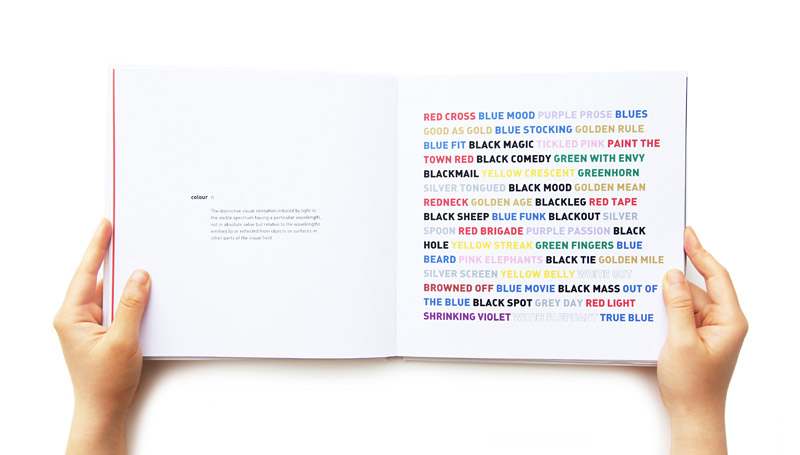 colour n
The distinctive visual sensation induced by light in
the visible spectrum having a particular wavelength,
not in absolute value but relative to the wavelengths
emitted by or reflected from objects or surfaces in
other parts of the visual field.
RED CROSS BLUE MOOD PURPLE PROSE BLUES
GOOD AS GOLD BLUE STOCKING GOLDEN RULE
BLUE FIT BLACK MAGIC TICKLED PINK PAINT THE
TOWN RED BLACK COMEDY GREEN WITH ENVY
BLACKMAIL YELLOW CRESCENT GREENHORN
SILVER TONGUED BLACK MOOD GOLDEN MEAN
REDNECK GOLDEN AGE BLACKLEG RED TAPE
BLACK SHEEP BLUE FUNK BLACKOUT SILVER
SPOON RED BRIGADE PURPLE PASSION BLACK
HOLE YELLOW STREAK GREEN FINGERS BLUE
BEARD PINK ELEPHANTS BLACK TIE GOLDEN MILE
SILVER SCREEN YELLOW BELLY WHITE OUT
BROWNED OFF BLUE MOVIE BLACK MASS OUT OF
THE BLUE BLACK SPOT GREY DAY RED LIGHT
SHRINKING VIOLET WHITE ELEPHANT TRUE BLUE